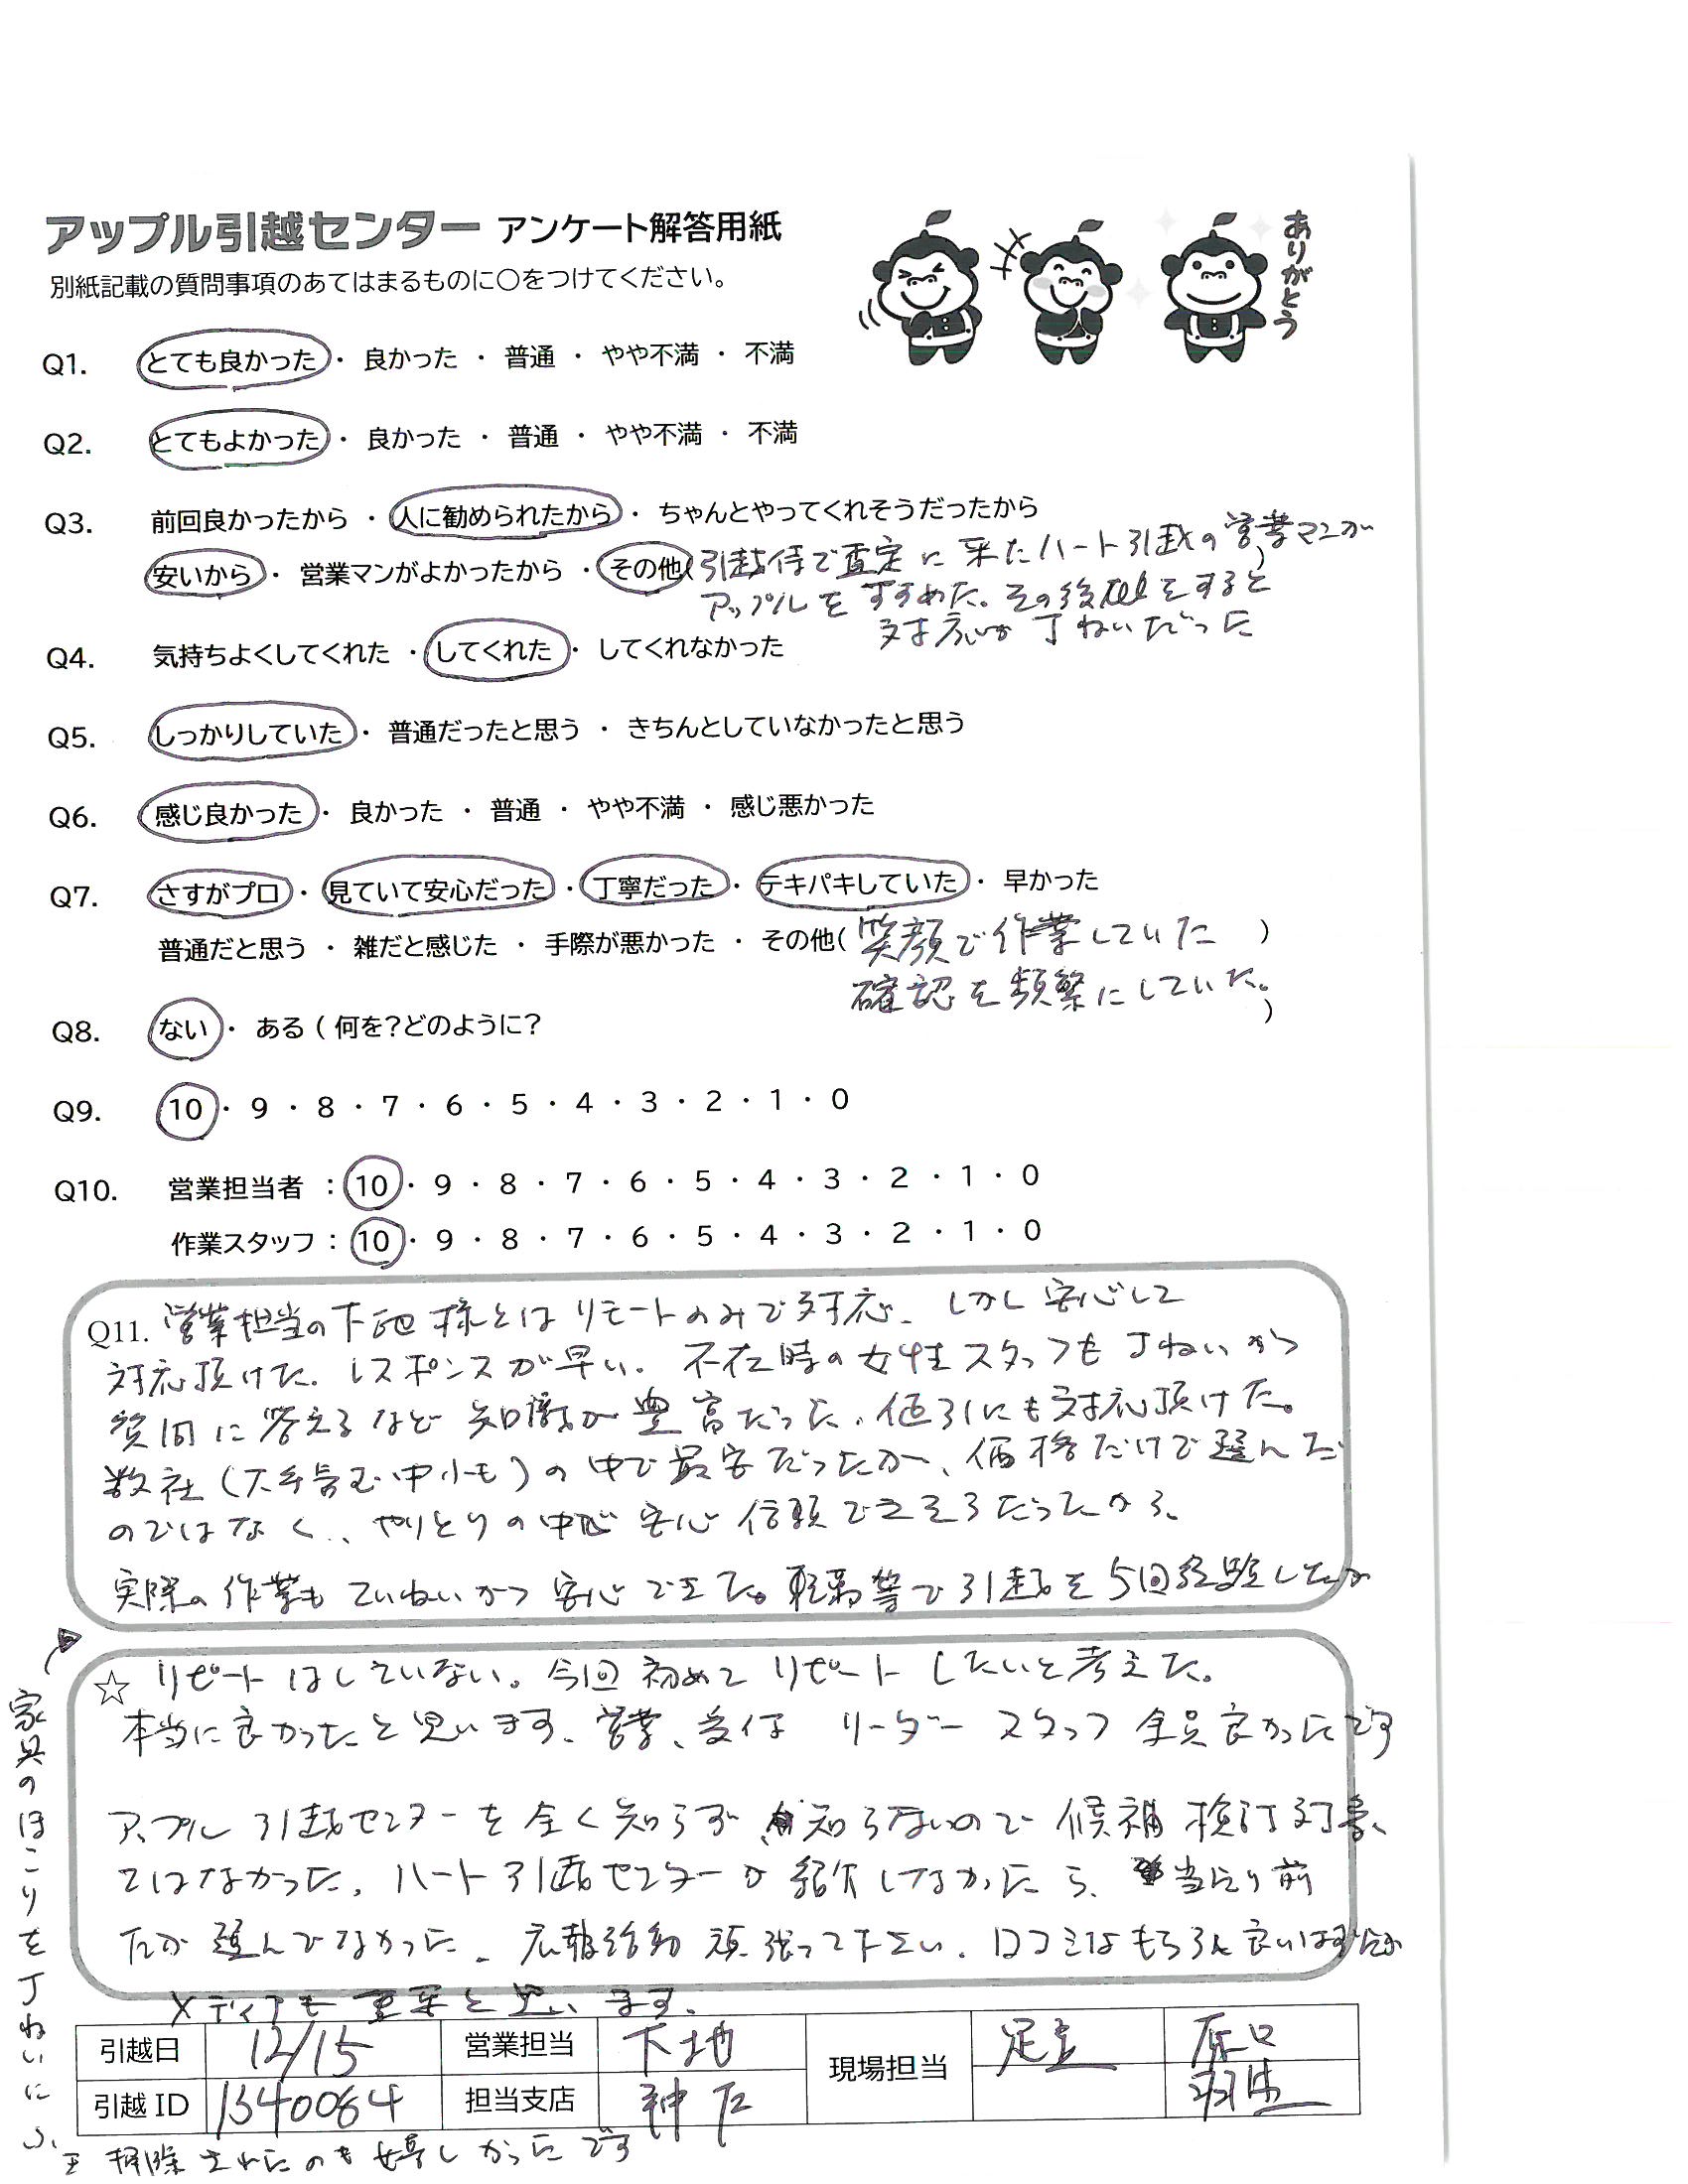 アップル引越センター アンケート解答用紙
別紙記載の質問事項のあてはまるものに○をつけてください。
ありがとう
Q1. とても良かった ・ 良かった ・ 普通 ・ やや不満 ・ 不満
Q2. とてもよかった ・ 良かった ・ 普通 ・ やや不満 ・ 不満
Q3. 前回良かったから ・ 人に勧められたから ・ ちゃんとやってくれそうだったから
安いから ・ 営業マンがよかったから ・ その他( 引越侍で査定に来たハート引越の営業マンが )
アップルをすすめた。その後telをすると
対応が丁ねいだった
Q4. 気持ちよくしてくれた ・ してくれた ・ してくれなかった
Q5. しっかりしていた ・ 普通だったと思う ・ きちんとしていなかったと思う
Q6. 感じ良かった ・ 良かった ・ 普通 ・ やや不満 ・ 感じ悪かった
Q7. さすがプロ ・ 見ていて安心だった ・ 丁寧だった ・ テキパキしていた ・ 早かった
普通だと思う ・ 雑だと感じた ・ 手際が悪かった ・ その他( 笑顔で作業していた )
確認を頻繁にしていた。
Q8. ない ・ ある ( 何を?どのように? )
Q9. 10 ・ 9 ・ 8 ・ 7 ・ 6 ・ 5 ・ 4 ・ 3 ・ 2 ・ 1 ・ 0
Q10. 営業担当者 : 10 ・ 9 ・ 8 ・ 7 ・ 6 ・ 5 ・ 4 ・ 3 ・ 2 ・ 1 ・ 0
作業スタッフ : 10 ・ 9 ・ 8 ・ 7 ・ 6 ・ 5 ・ 4 ・ 3 ・ 2 ・ 1 ・ 0
Q11. 営業担当の下地様とはリモートのみで対応、しかし安心して
対応頂けた。レスポンスが早い。不在時の女性スタッフも丁ねいかつ
質問に答えるなど知識が豊富だった。値引にも対応頂けた。
数社(大手含む中小も)の中で最安だったが、価格だけで選んだ
のではなく、やりとりの中で安心信頼できそうだったから。
実際の作業もていねいかつ安心できた。転勤等で引越を5回経験したが
☆ リピートはしていない。今回初めてリピートしたいと考えた。
本当に良かったと思います、営業、受付 リーダー スタッフ 全員良かったです
アップル引越センターを全く知らず、知らないので候補 検討対象
ではなかった。ハート引越センターが紹介しなかったら、当たり前
だが選んでなかった。広報活動頑張って下さい。口コミはもちろん良いはずだが
メディアも重要と思います。
家具のほこりを丁ねいにふ
き掃除されたのも嬉しかったです
引越日 12/15 営業担当 下地 現場担当 足立 原口
引越ID 1340064 担当支店 神戸